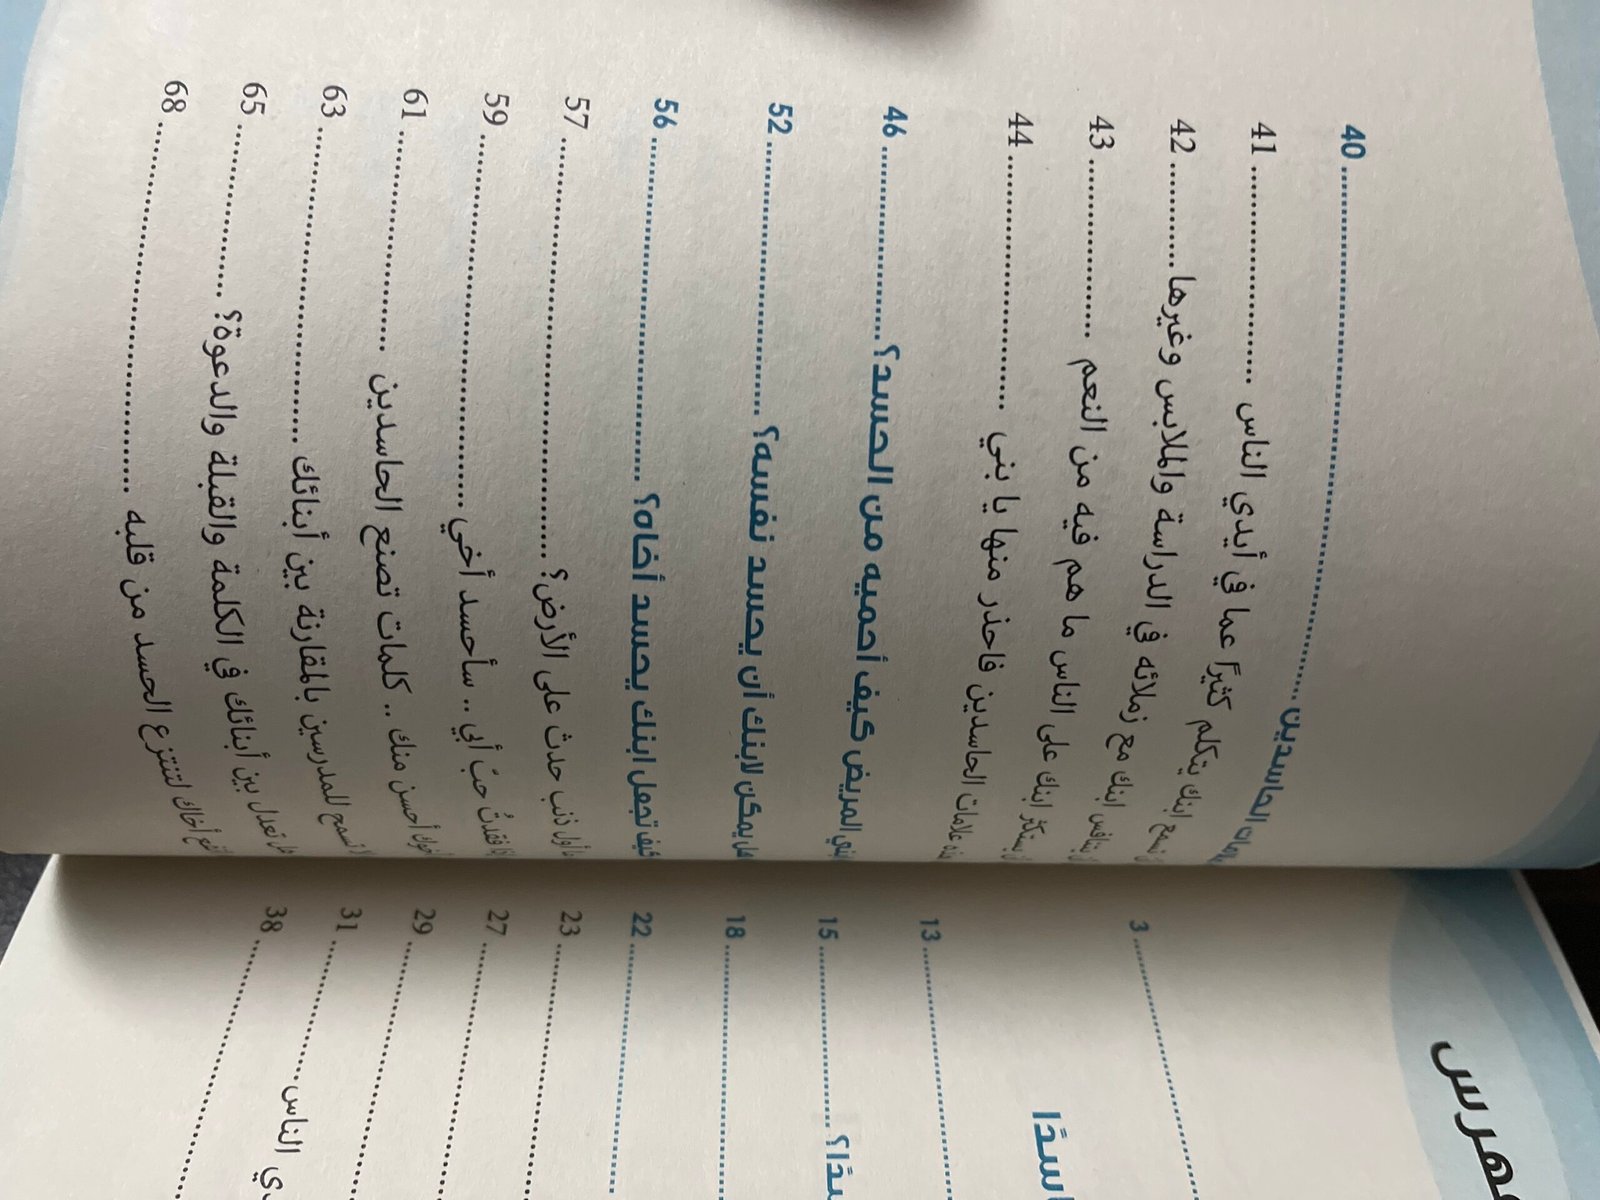 فهرس
3
سدًا
13
سدًا؟ 15
18
22
23
27
29
ي الناس 31
38
الحاسدين 40
ابنك يتكلم كثيرًا عما في أيدي الناس 41
ابنك مع زملائه في الدراسة والملابس وغيرها 42
ابنك على الناس ما هم فيه من النعم 43
علامات الحاسدين فاحذر منها يا بني 44
المريض كيف أحميه من الحسد؟ 46
هل يمكن لابنك أن يحسد نفسه؟ 52
كيف تجعل ابنك يحسد أخاه؟ 56
أول ذنب حدث على الأرض؟ 57
فقدتُ حبّ أبي .. سأحسد أخي 59
أخوك أحسن منك .. كلمات تصنع الحاسدين 61
لا تسمح للمدرسين بالمقارنة بين أبنائك 63
هل تعدل بين أبنائك في الكلمة والقبلة والدعوة؟ 65
أخاك لتنتزع الحسد من قلبه 68